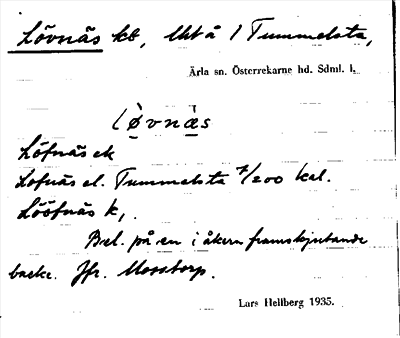 Lövnäs kt, Utå / Tummelsta,
Ärla sn. Österrekarne hd. Sdml. l.
lø̀vnæ̀s
Löfnäs ek
Lofnäs el. Tummelsta 7/200 kal.
Lööfnäs k,.
Bel. på en i åkern framskjutande
backe. Jfr. Mosstorp.
Lars Hellberg 1935.